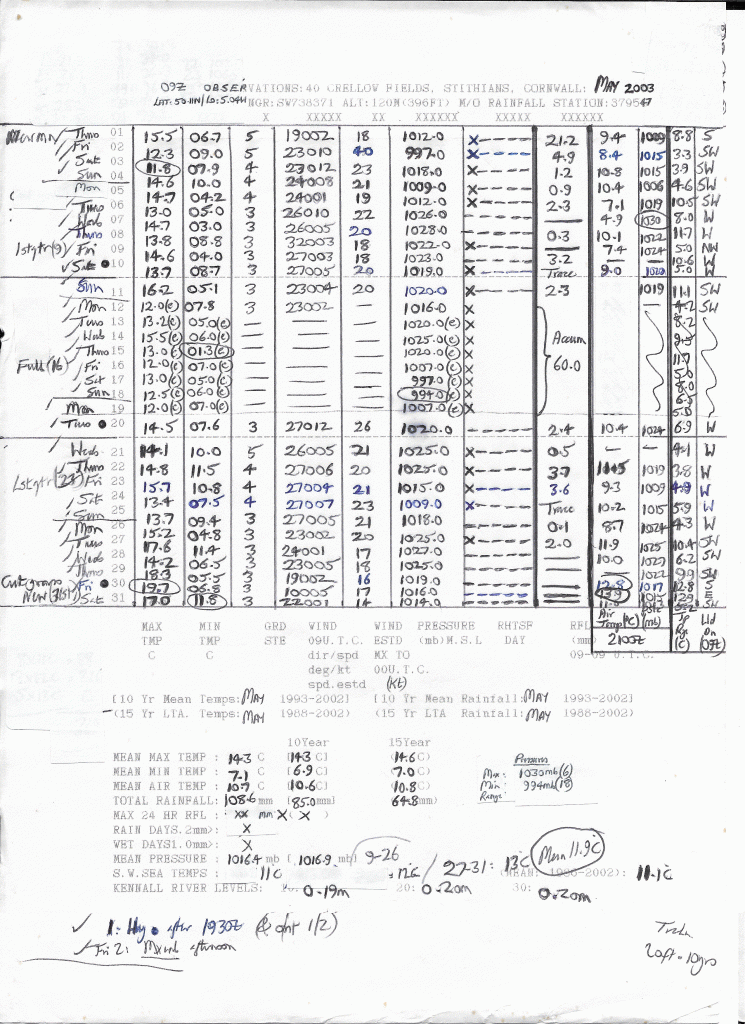 09Z OBSERVATIONS:40 CRELLOW FIELDS, STITHIANS, CORNWALL: MAY 2003
LAT:50.11N/LO:5.04W NGR:SW738371 ALT:120M(396FT) M/O RAINFALL STATION:379547
X XXXXX XX . XXXXXX XXXXX XXXXXX
Thus 01 15.5 06.7 5 19002 18 1012.0 X---- 21.2 9.4 1009 8.8 S
Fri 02 12.3 09.0 5 23010 40 997.0 X---- 4.9 8.4 1015 3.3 SW
Sat 03 11.8 07.9 4 23012 23 1018.0 X---- 1.2 10.8 1015 3.9 SW
Sun 04 14.6 10.0 4 24008 21 1009.0 X---- 0.9 10.4 1006 4.6 SW
Mon 05 14.7 04.2 4 24001 19 1012.0 X---- 2.3 7.1 1019 10.5 SW
Tues 06 13.0 05.0 3 26010 22 1026.0 ---- — 4.9 1030 8.0 W
Weds 07 14.7 03.0 3 26005 20 1028.0 ---- 0.3 10.1 1022 11.7 W
Thurs 08 13.8 08.8 3 32003 18 1022.0 X---- — 7.4 1024 5.0 NW
1stqtr(9) Fri 09 14.6 04.0 3 27003 18 1023.0 ---- 3.2 — — 10.6 W
Sat 10 13.7 08.7 3 27005 20 1019.0 X---- Trace 9.0 1020 5.0 W
Sun 11 16.2 05.1 3 23004 20 1020.0 X---- 2.3 1019 11.1 SW
Mon 12 12.0(e) 07.8 3 23002 — 1016.0 X 4.2 SW
Tues 13 13.2(e) 05.0(e) — — — 1020.0(e) X 8.2
Weds 14 15.5(e) 06.0(e) — — — 1025.0(e) X Accum 9.5
Thus 15 13.0(e) 01.3(e) — — — 1020.0(e) X 60.0 11.7
Full(16) Fri 16 12.0(e) 07.0(e) — — — X 5.0
Sat 17 13.0(e) 05.0(e) — — — 997.0(e) X 8.0
Sun 18 12.5(e) 06.0(e) — — — 994.0(e) X 6.5
Mon 19 12.0(e) 07.0(e) — — — 1007.0(e) X 5.0
Tues 20 14.5 07.6 3 27012 26 1020.0 2.4 10.4 1024 6.9 W
Weds 21 14.1 10.0 5 26005 21 1025.0 X---- 0.5 — — 4.1 W
Thurs 22 14.8 11.5 4 27006 20 1025.0 X---- 3.7 11.5 1019 3.8 W
Lstqtr(23) Fri 23 15.7 10.8 4 27004 21 1015.0 X---- 3.6 9.3 1009 4.9 W
Sat 24 13.4 07.5 4 27007 23 1009.0 X---- Trace 10.2 1015 5.9 W
Sun 25 13.7 09.4 3 27005 21 1018.0 ---- 0.1 8.7 1024 4.3 W
Mon 26 15.2 04.8 3 23002 20 1025.0 X---- 2.0 11.9 1025 10.4 SW
Tues 27 17.6 11.4 3 24001 17 1027.0 ---- — 10.0 1027 6.2 SW
Weds 28 14.2 06.5 3 23005 18 1025.0 ---- — — 1022 9.9 SW
Thurs 29 18.3 05.5 3 19002 16 1019.0 ---- — 12.8 1017 12.8 S
Fri 30 19.7 06.8 3 10005 17 1016.0 ---- — 13.9 1013 12.9 E
New(31st) Sat 31 17.0 11.8 3 22001 14 1014.0 ---- SW
MAX MIN GRD WIND WIND PRESSURE RHTSF RFL Air Temp(°C) (mb)
TMP TMP STE 09U.T.C. ESTD (mb)M.S.L DAY (mm) 2103Z
C C dir/spd MX TO 09-09 U.T.C. (C) (09Z)
deg/kt 00U.T.C.
spd.estd (Kt)
[10 Yr Mean Temps: MAY 1993-2002] [10 Yr Mean Rainfall: MAY 1993-2002]
(15 Yr LTA. Temps: MAY 1988-2002) (15 Yr LTA Rainfall: MAY 1988-2002)
10Year 15Year
MEAN MAX TEMP : 14.3 C [14.3 C] (14.6 C)
MEAN MIN TEMP : 7.1 C [6.9 C] (7.0 C)
MEAN AIR TEMP : 10.7 C [10.6 C] (10.8 C)
TOTAL RAINFALL: 108.6 mm [85.0mm] 64.8mm)
Pressures
Max: 1030mb(6)
Min: 994mb(18)
Range:
MAX 24 HR RFL : XX mm X ( X )
RAIN DAYS.2mm>: X
WET DAYS1.0mm>: X
MEAN PRESSURE : 1016.4 mb [ 1016.9 mb] 9-26 27-31: 13°C Mean 11.9°C
S.W.SEA TEMPS : 11C : 12C (MEAN: 1986-2002): 11.1°C
KENNALL RIVER LEVELS: 0.19m 20: 0.20m 30: 0.20m
✓ 1: Hvy after 1930Z (& qnt 1/2)
Fri 2: Mixed afternoon
20ft - 10yrs